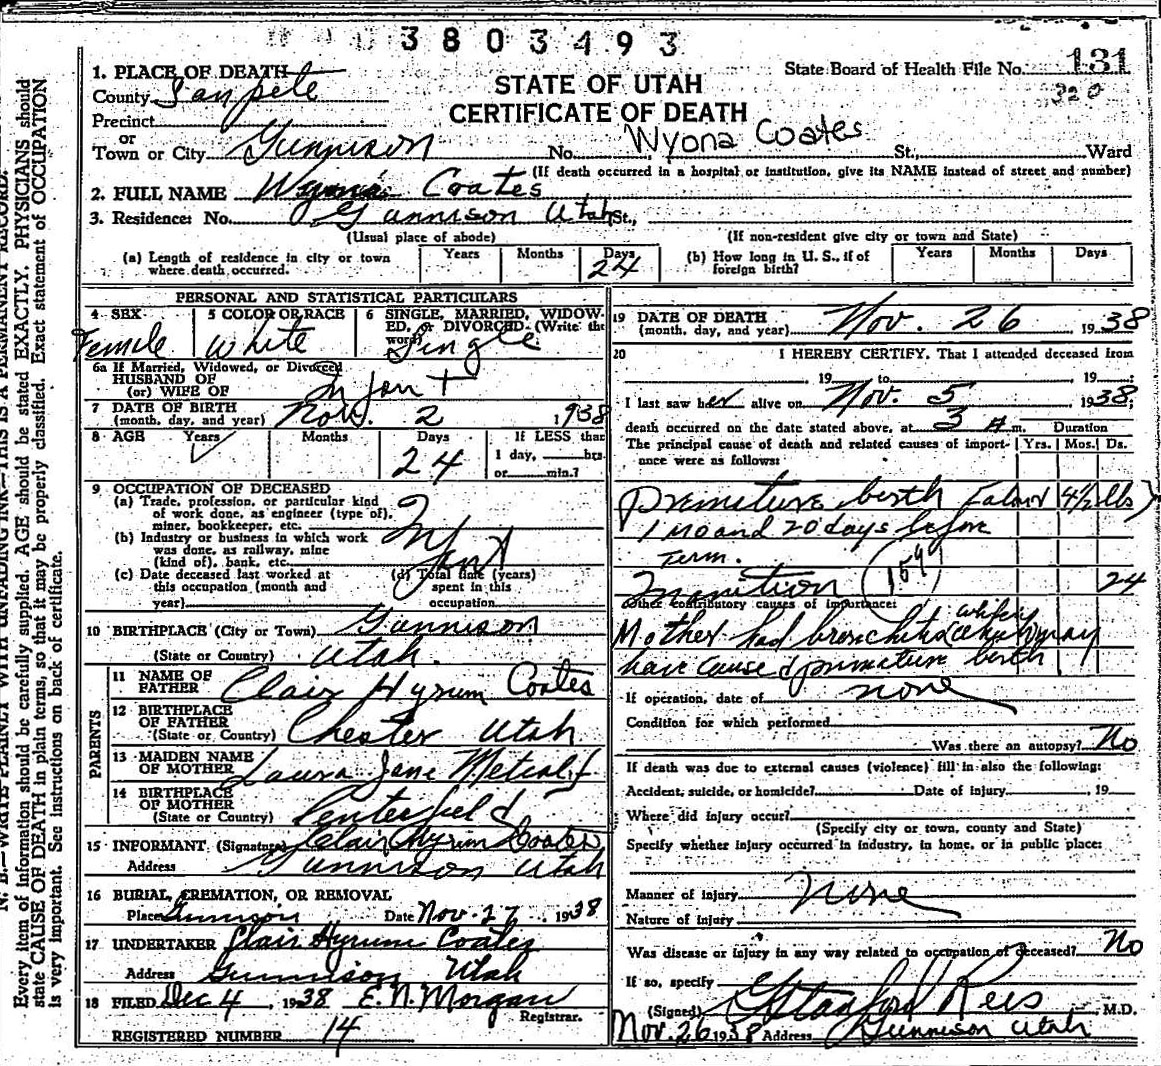 3803493
State Board of Health File No. 131
320
STATE OF UTAH
CERTIFICATE OF DEATH
1. PLACE OF DEATH
County Sanpete
Precinct
or
Town or City Gunnison No. Wyona Coates St., Ward
(If death occurred in a hospital or institution, give its NAME instead of street and number)
2. FULL NAME Wyona Coates
3. Residence: No. Gunnison Utah St.,
(Usual place of abode) (If non-resident give city or town and State)
(a) Length of residence in city or town where death occurred. Years Months Days 24
(b) How long in U. S., if of foreign birth? Years Months Days
PERSONAL AND STATISTICAL PARTICULARS
4 SEX Female
5 COLOR OR RACE White
6 SINGLE, MARRIED, WIDOWED, or DIVORCED (Write the word) Single
6a If Married, Widowed, or Divorced
HUSBAND OF
(or) WIFE OF Infant
7 DATE OF BIRTH
(month, day, and year) Nov. 2 1938
8 AGE Years Months Days 24 If LESS than 1 day, hrs. or min.?
9 OCCUPATION OF DECEASED
(a) Trade, profession, or particular kind of work done, as engineer (type of), miner, bookkeeper, etc.
Infant
(b) Industry or business in which work was done, as railway, mine (kind of), bank, etc.
(c) Date deceased last worked at this occupation (month and year)
(d) Total time (years) spent in this occupation
10 BIRTHPLACE (City or Town) Gunnison
(State or Country) Utah.
PARENTS
11 NAME OF FATHER Clair Hyrum Coates
12 BIRTHPLACE OF FATHER
(State or Country) Chester Utah
13 MAIDEN NAME OF MOTHER Laura Jane Metcalf
14 BIRTHPLACE OF MOTHER
(State or Country) Centerfield
15 INFORMANT (Signature) Clair Hyrum Coates
Address Gunnison Utah
16 BURIAL, CREMATION, OR REMOVAL
Place Gunnison Date Nov. 27 1938
17 UNDERTAKER Clair Hyrum Coates
Address Gunnison Utah
18 FILED Dec 4, 1938 E. N. Morgan
Registrar.
REGISTERED NUMBER 14
19 DATE OF DEATH
(month, day, and year) Nov. 26 1938
20 I HEREBY CERTIFY, That I attended deceased from
19 to 19
I last saw her alive on Nov. 5 1938;
death occurred on the date stated above, at 3 A m. Duration
The principal cause of death and related causes of importance were as follows: Yrs. Mos. Ds.
Premature birth 4½ lbs)
1 mo and 20 days before
Term.
Inanition (159) 24
Other contributory causes of importance:
Mother had bronchitis which may
have caused premature birth
If operation, date of none
Condition for which performed
Was there an autopsy? No
If death was due to external causes (violence) fill in also the following:
Accident, suicide, or homicide? Date of injury 19
Where did injury occur?
(Specify city or town, county and State)
Specify whether injury occurred in industry, in home, or in public place:
Manner of injury none
Nature of injury
Was disease or injury in any way related to occupation of deceased? No
If so, specify
(Signed) G Stanford Rees M.D.
Nov. 26 1938 Address Gunnison Utah
N. B.—WRITE PLAINLY WITH UNFADING INK—THIS IS A PERMANENT RECORD.
Every item of information should be carefully supplied. AGE should be stated EXACTLY. PHYSICIANS should
state CAUSE OF DEATH in plain terms, so that it may be properly classified. Exact statement of OCCUPATION
is very important. See instructions on back of certificate.